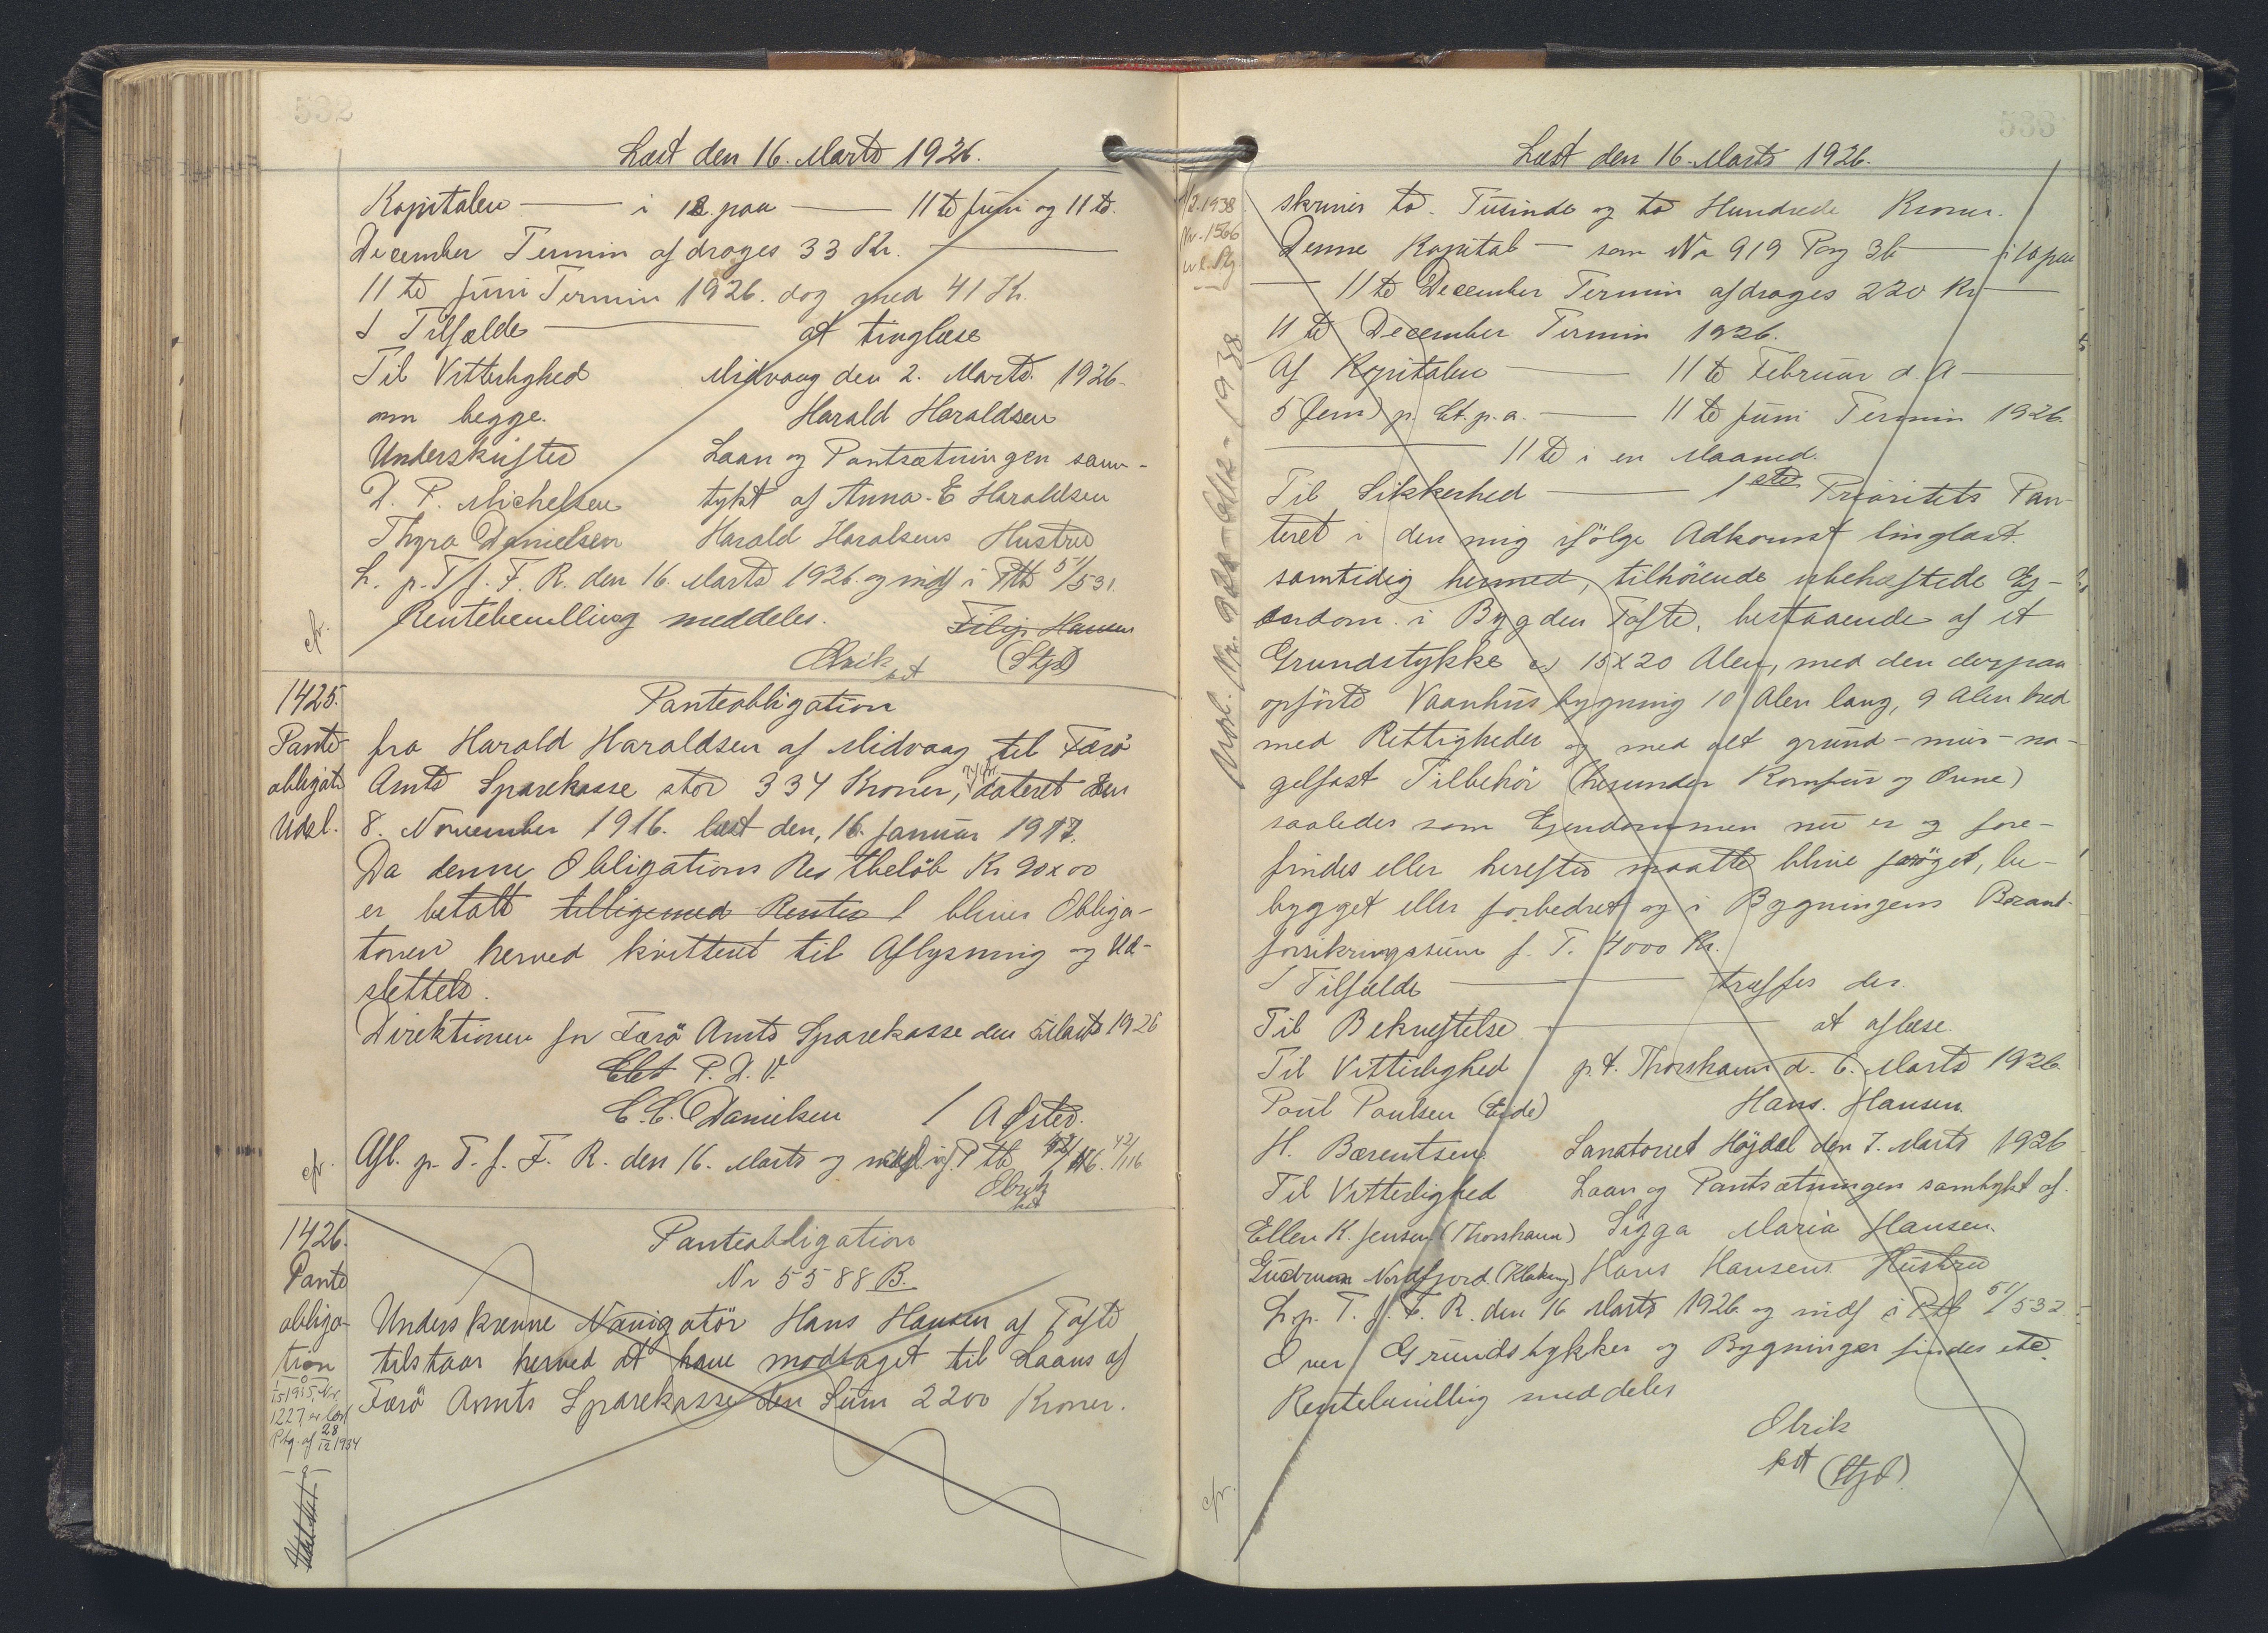 532
Læst den 16. Marts 1926.
Kapitalen — i 12. paa — 11te Juni og 11te
December Termin afdrages 33 Kr. —
11te Juni Termin 1926. dog med 41 Kr.
I Tilfælde — at tinglæse
Til Vitterlighed Midvaag den 2. Marts. 1926.
om begge. Harald Haraldsen
Underskrifter Laan og Pantsætningen sam-
D. P. Michelsen tykt af Anna. E Haraldsen
Thyra Danielsen Harald Haralsens Hustru
L. p. T. f. F. R. den 16. Marts 1926. og indf i Ptb 51/531.
Rentebevilling meddeles. Filip Hansen
cfr. Olrik kst (Stpl)
1425. Panteobligation
Pante- fra Harald Haraldsen af Midvaag til Færö
obligat Amts Sparekasse stor 334 Kroner, dateret den
Udsl. 8. November 1916. læst den, 16. Januar 1917.
Da denne Obligations Restbelöb Kr 90x00
er betalt tilligemed Renter bliver Obliga-
tonen herved kvitteret til Aflysning og Ud-
slettelse.
Direktionen for Færö Amts Sparekasse den Marts 1926
P. D. V.
C. C. Danielsen / A Øster.
cfr. Afl. p. T. f. F. R. den 16. Marts og Ptb 42/116. 42/116
Olrik
kst
1426. Panteobligation
Pante Nr 5588 B.
obliga- Underskrevne Navigatör Hans Hansen af Tofte
tion tilstaar herved at have modtaget til Laans af
1/5 1935, Nr. Færö Amts Sparekasse den Sum 2200 Kroner.
1227, er læst
Ptg. af 28/12 1934
533
Læst den 16. Marts 1926.
1/2. 1938. skriver to. Tusinde og to Hundrede Kroner.
Nr. 1566 Denne Kapital — som No 919 Pag 36 — i 10 paa
— 11te December Termin afdrages 220 Kr —
11te December Termin 1926.
Af Kapitalen — 11te Februar d. A —
5 (fem) p. Ct. p. a. — 11te Juni Termin 1926.
— 11te i en Maaned.
Til Sikkerhed — 1ste Prioritets Pan-
teret i den mig ifölge Adkomst tinglæst.
samtidig hermed, tilhörende ubehæftede Ej-
endom i Bygden Tofte, bestaaende af et
Grundstykke 15x20 Alen, med den derpaa
opförte Vaanhusbygning 10 Alen lang, 9 Alen bred
med Rettigheder og med alt grund-mur-na-
gelfast Tilbehör (herunder Komfur og Ovne)
saaledes som Ejendommen nu er og fore-
findes eller herefter maatte blive foröget, be-
bygget eller forbedret og i Bygningens Brand-
forsikringssum f. T. 4000 Kr.
I Tilfælde — træffes der.
Til Bekræftelse — at aflæse.
Til Vitterlighed p. t. Thorshavn d. 6. Marts 1926.
Poul Poulsen (Gjde) Hans. Hansen.
H. Bærentsen. Sanatoriet Höjdal den 7. Marts 1926
Til Vitterlighed Laan og Pantsætningen samtykt af.
Ellen K. Jensen (Thorshavn) Sigga Maria Hansen.
Gudrun Nordfjord. (Klaksvig) Hans Hansens Hustru
L. p. T. f. F. R. den 16 Marts 1926 og indf i Ptb 51/532.
Over Grundstykker og Bygninger findes etc.
Rentebevilling meddeles
Olrik
cfr. kst (Stpl)